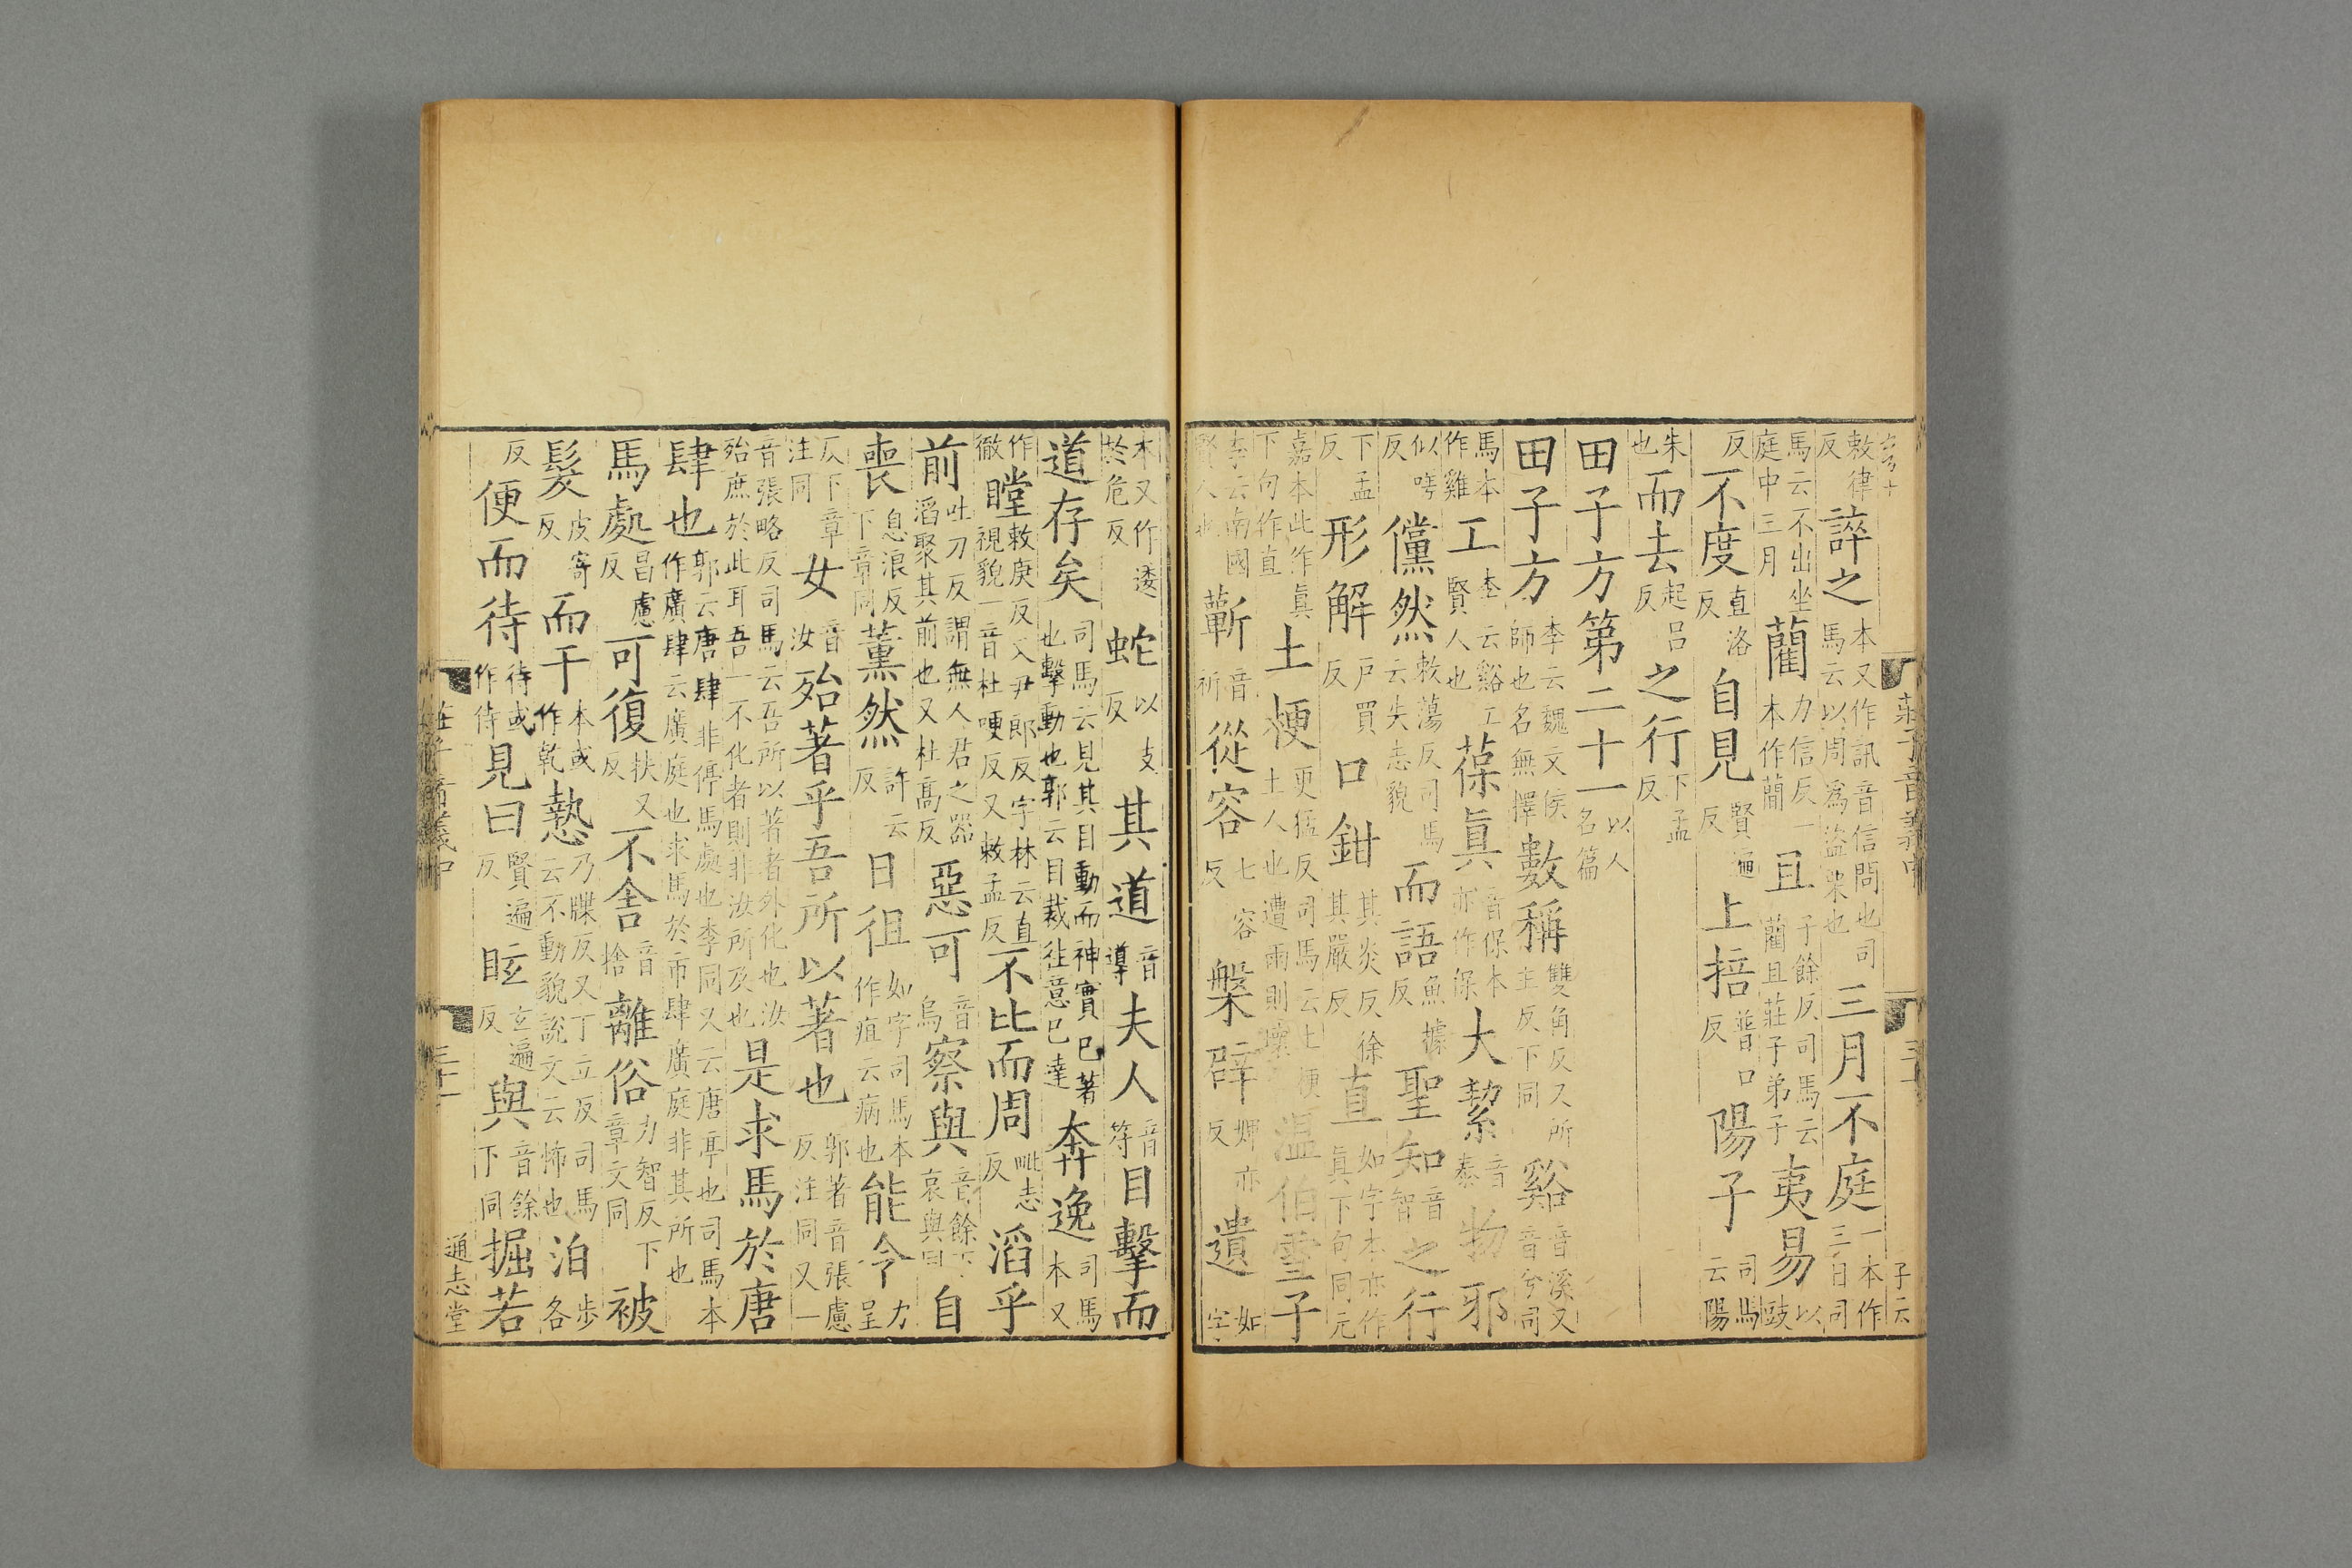 莊子音義中
敕律反誶之本又作訊音信問也司馬云以周爲盜栗也三月不庭一本作三日司
馬云不出坐庭中三月藺力信反一本作藺且子餘反司馬云藺且莊子弟子夷易以豉
反不度直洛反自見賢遍反上掊普口反陽子司馬云陽
朱也而去起呂反之行下孟反
田子方第二十一以人名篇
田子方李云魏文侯師也名無擇數稱雙角反又所主反下同谿音溪又音兮司
馬本作雞工李云谿工賢人也葆眞音保本亦作保大絜音泰物邪
似嗟反儻然敕蕩反司馬云失志貌而語魚據反聖知音智之行
下孟反形解戸買反口鉗其炎反徐其嚴反直如字本亦作眞下句同元
嘉本此作眞下句作直土梗更猛反司馬云土梗土人也遭雨則壞温伯雪子
李云南國賢人也蘄音祈從容七容反槃辟婢亦反遺如字
本又作逶於危反蛇以支反其道音導夫人音符目擊而
道存矣司馬云見其目動而神實已著也擊動也郭云目裁往意已達奔逸司馬本又
作徹瞠敕庚反又尹郎反字林云直視貌一音杜哽反又敕孟反不比而周毗志反滔乎
前吐刀反謂無人君之器滔聚其前也又杜高反惡可音烏察與音餘下哀與同自
喪息浪反下章同薰然許云反日徂如字司馬本作疽云病也能令力呈
反下章注同女音汝殆著乎吾所以著也郭著音張慮反注同又一
音張略反司馬云吾所以著者外化也汝殆庶於此耳吾一不化者則非汝所及也是求馬於唐
肆也郭云唐肆非停馬處也李同又云唐亭也司馬本作廣肆云廣庭也求馬於市肆廣庭非其所也
馬處昌慮反可復扶又反不舍音捨離俗力智反下章文同被
髮皮寄反而干本或作乾慹乃牒反又丁立反司馬云不動貌說文云怖也泊步各
反便而待待或作侍見曰賢遍反眩玄遍反與音餘下同掘若
莊子音義中
通志堂